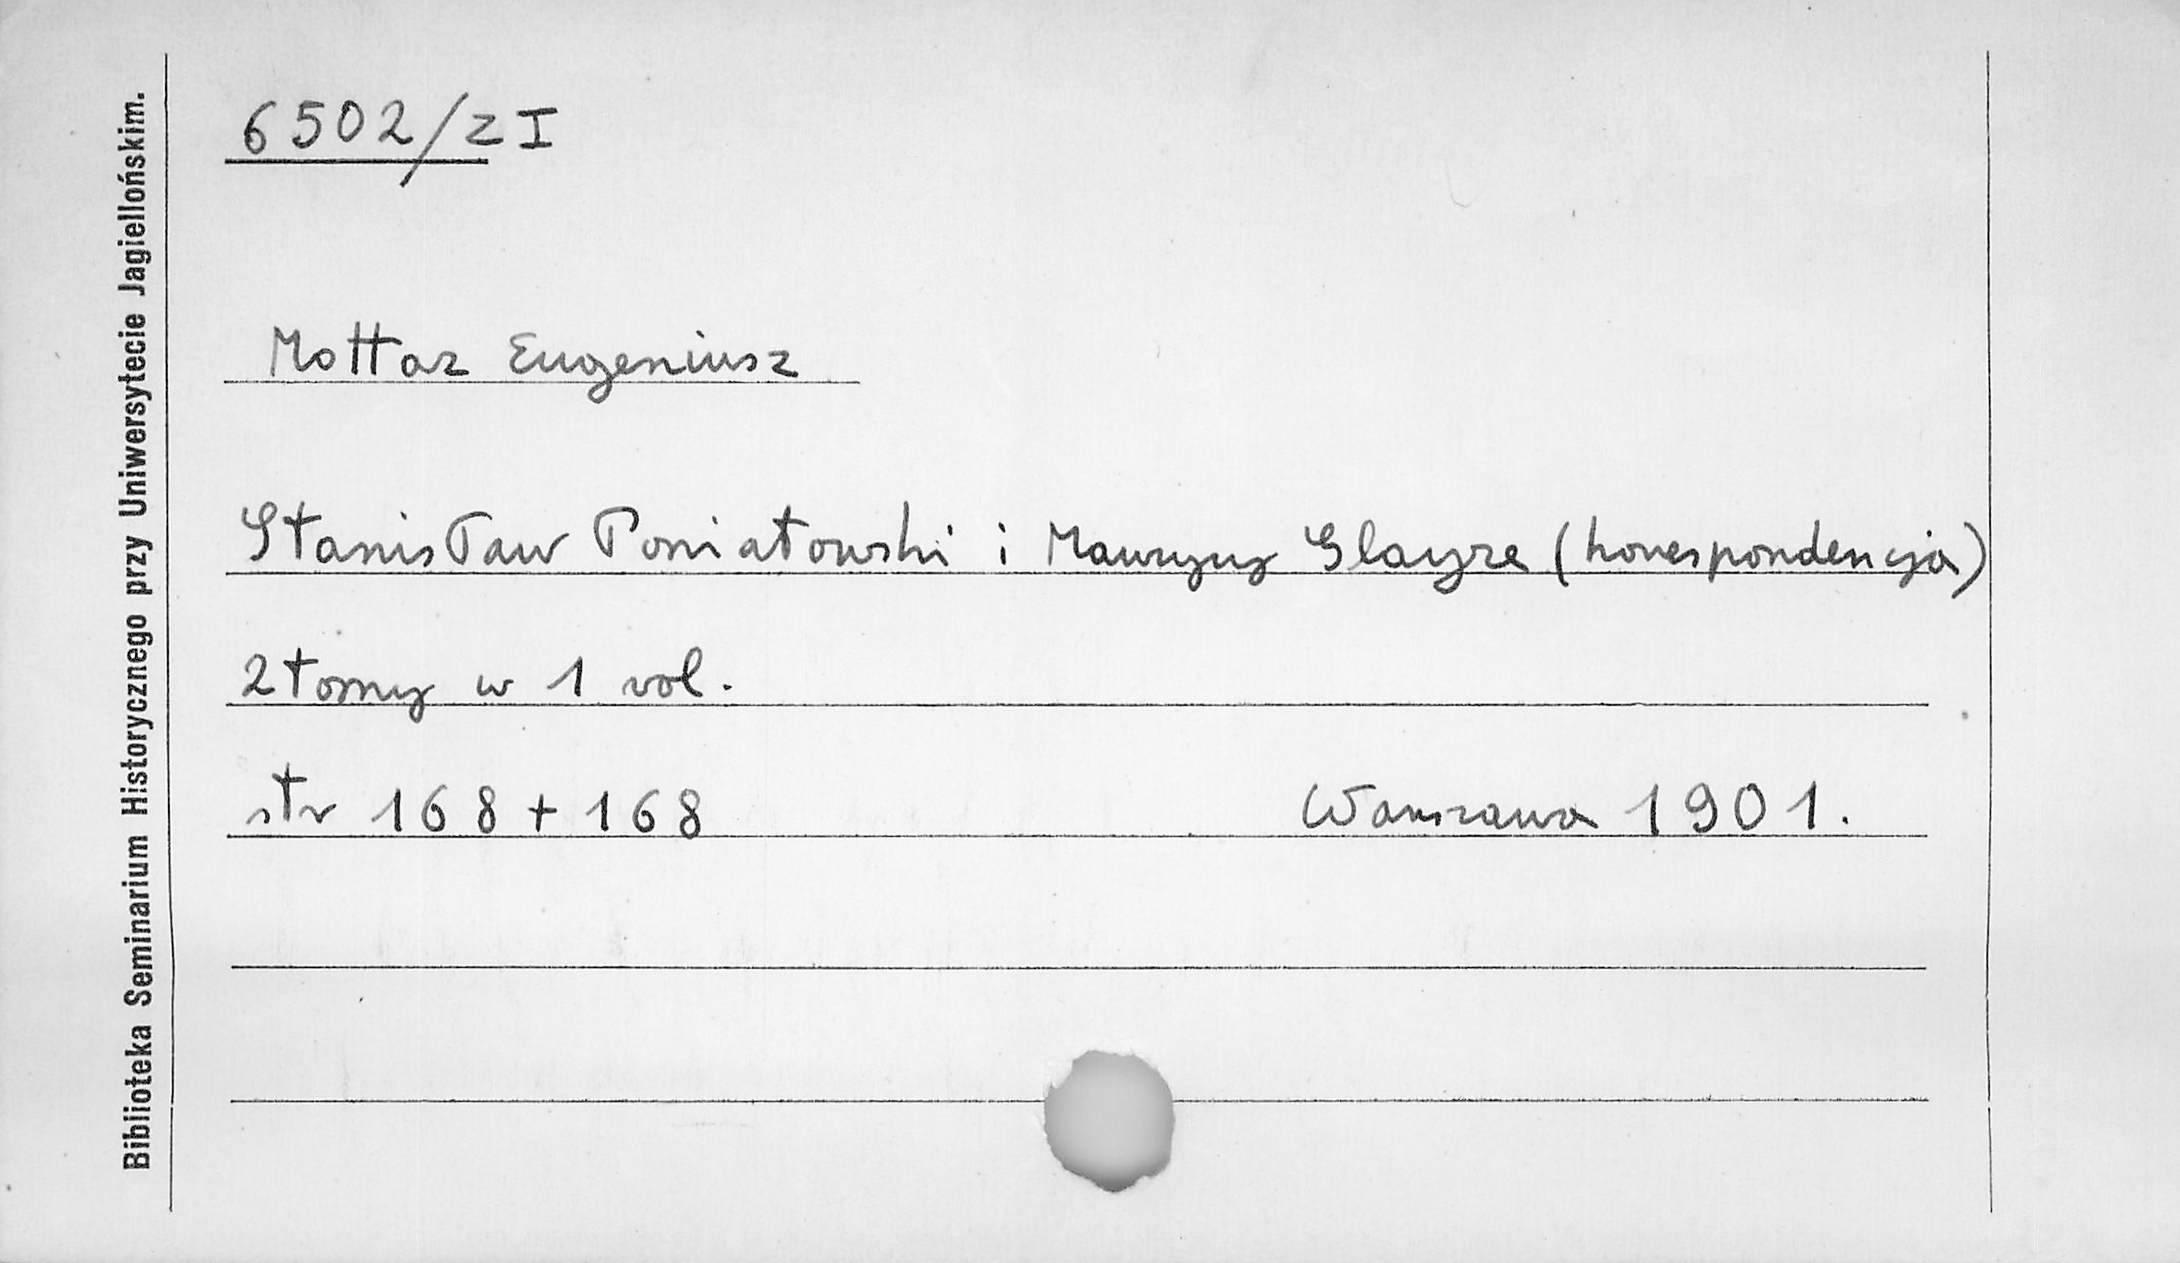 Biblioteka Seminarium Historycznego przy Uniwersytecie Jagiellońskim.
6502/z I
Mottaz Eugeniusz
Stanisław Poniatowski i Maurycy Glayre (korespondencja)
2 tomy w 1 vol.
str 168 + 168 Warszawa 1901.